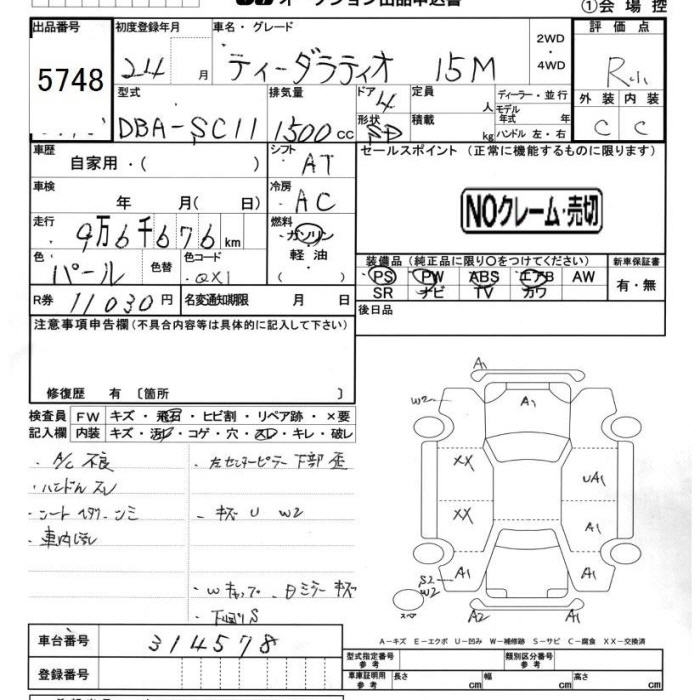 オークション出品申込書 ①会場控
出品番号 初度登録年月 車名・グレード 2WD・4WD 評価点
5748 24 月 ティーダラティオ 15M R小
型式 排気量 ドア 4 定員 人 ディーラー・並行 外装 内装
モデル年式 年
DBA-SC11 1500cc 形状 SD 積載 kg ハンドル 左・右 C C
車歴 自家用・( ) シフト AT セールスポイント (正常に機能するものに限ります)
車検 年 月( 日) 冷房 AC
NOクレーム・売切
走行 9万6千676km 燃料 ガソリン・軽油・( )
色 パール 色替 色コード QX1 装備品 (純正品に限り○をつけてください) 新車保証書
PS PW ABS エアB AW 有・無
SR ナビ TV カワ
R券 11030円 名変通知期限 月 日 後日品
注意事項申告欄(不具合内容等は具体的に記入して下さい)
修復歴 有 〔箇所 〕
検査員記入欄 FW キズ・飛石・ヒビ割・リペア跡・×要
内装 キズ・汚レ・コゲ・穴・スレ・キレ・破レ
・A/C 不良 ・左センターピラー下部 歪
・ハンドルスレ
・シート ヘタリ・シミ ・キズ U W2
・車内汚れ
・Wキャップ・Dミラー キズ
・下回りS
A1
W2 A1
XX UA1
XX A1
S2 W2 A1 A1
スペア A2 A1
A-キズ E-エクボ U-凹み W-補修跡 S-サビ C-腐食 XX-交換済
車台番号 314578
型式指定番号 参考 類別区分番号 参考
登録番号 車庫証明用 参考 長さ cm 幅 cm 高さ cm